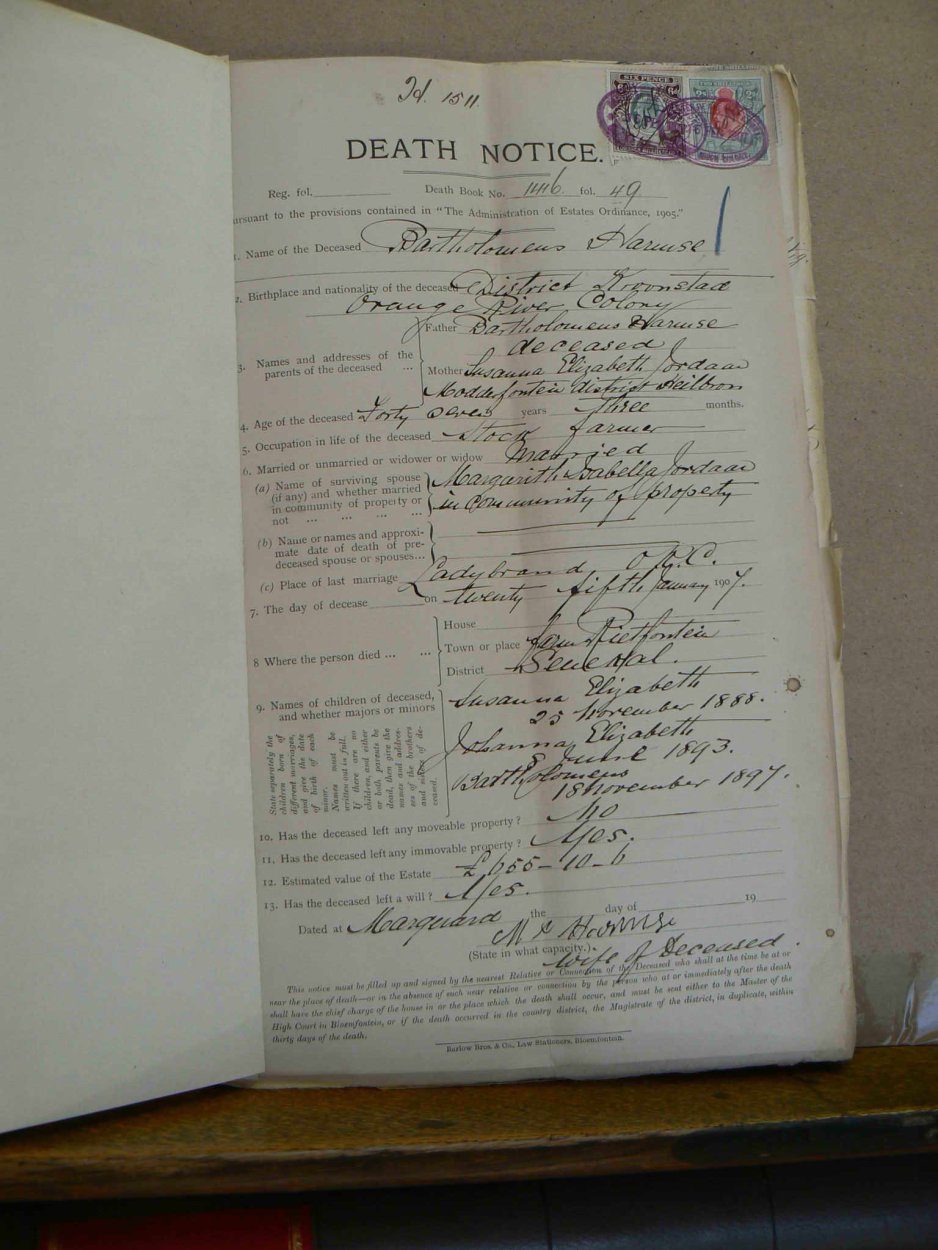 1511.
SIX PENCE
DEATH NOTICE.
Reg. fol. Death Book No. 1446 fol. 49
ursuant to the provisions contained in "The Administration of Estates Ordinance, 1905."
1. Name of the Deceased Bartholomeus Harmse
2. Birthplace and nationality of the deceased District Kroonstad
Orange River Colony
3. Names and addresses of the parents of the deceased ...
Father Bartholomeus Harmse
deceased
Mother Susanna Elizabeth Jordaan
Modderfontein district Heilbron
4. Age of the deceased Forty seven years three months.
5. Occupation in life of the deceased Stock farmer
6. Married or unmarried or widower or widow Married
(a) Name of surviving spouse
(if any) and whether married
in community of property or
not ... ... ... ...
Margarith Isabella Jordaan
in community of property
(b) Name or names and approxi-
mate date of death of pre-
deceased spouse or spouses...
(c) Place of last marriage Ladybrand O.R.C.
7. The day of decease on twenty fifth January 1907.
8 Where the person died ... ...
House
Town or place farm Rietfontein
District Senekal.
9. Names of children of deceased,
and whether majors or minors
State separately the
children born of
different marriages,
and give the date
of birth of each
minor.
Names must be
written out in full.
If there are no
children, and either
or both parents be
dead, then give the
names and address-
es of the brothers
and sisters of de-
ceased.
Susanna Elizabeth
25 November 1888.
Johanna Elizabeth
8 June 1893.
Bartholomeus
18 November 1897.
10. Has the deceased left any moveable property? No
11. Has the deceased left any immovable property? Yes.
12. Estimated value of the Estate £655-10-6
13. Has the deceased left a will? Yes.
Dated at Marquard the day of 19
Harmse
(State in what capacity.) wife of Deceased.
This notice must be filled up and signed by the nearest Relative or Connection of the Deceased who shall at the time be at or
near the place of death—or in the absence of such near relative or connection by the person who at or immediately after the death
shall have the chief charge of the house in or the place which the death shall occur, and must be sent either to the Master of the
High Court in Bloemfontein, or if the death occurred in the country district, the Magistrate of the district, in duplicate, within
thirty days of the death.
Barlow Bros. & Co., Law Stationers, Bloemfontein.